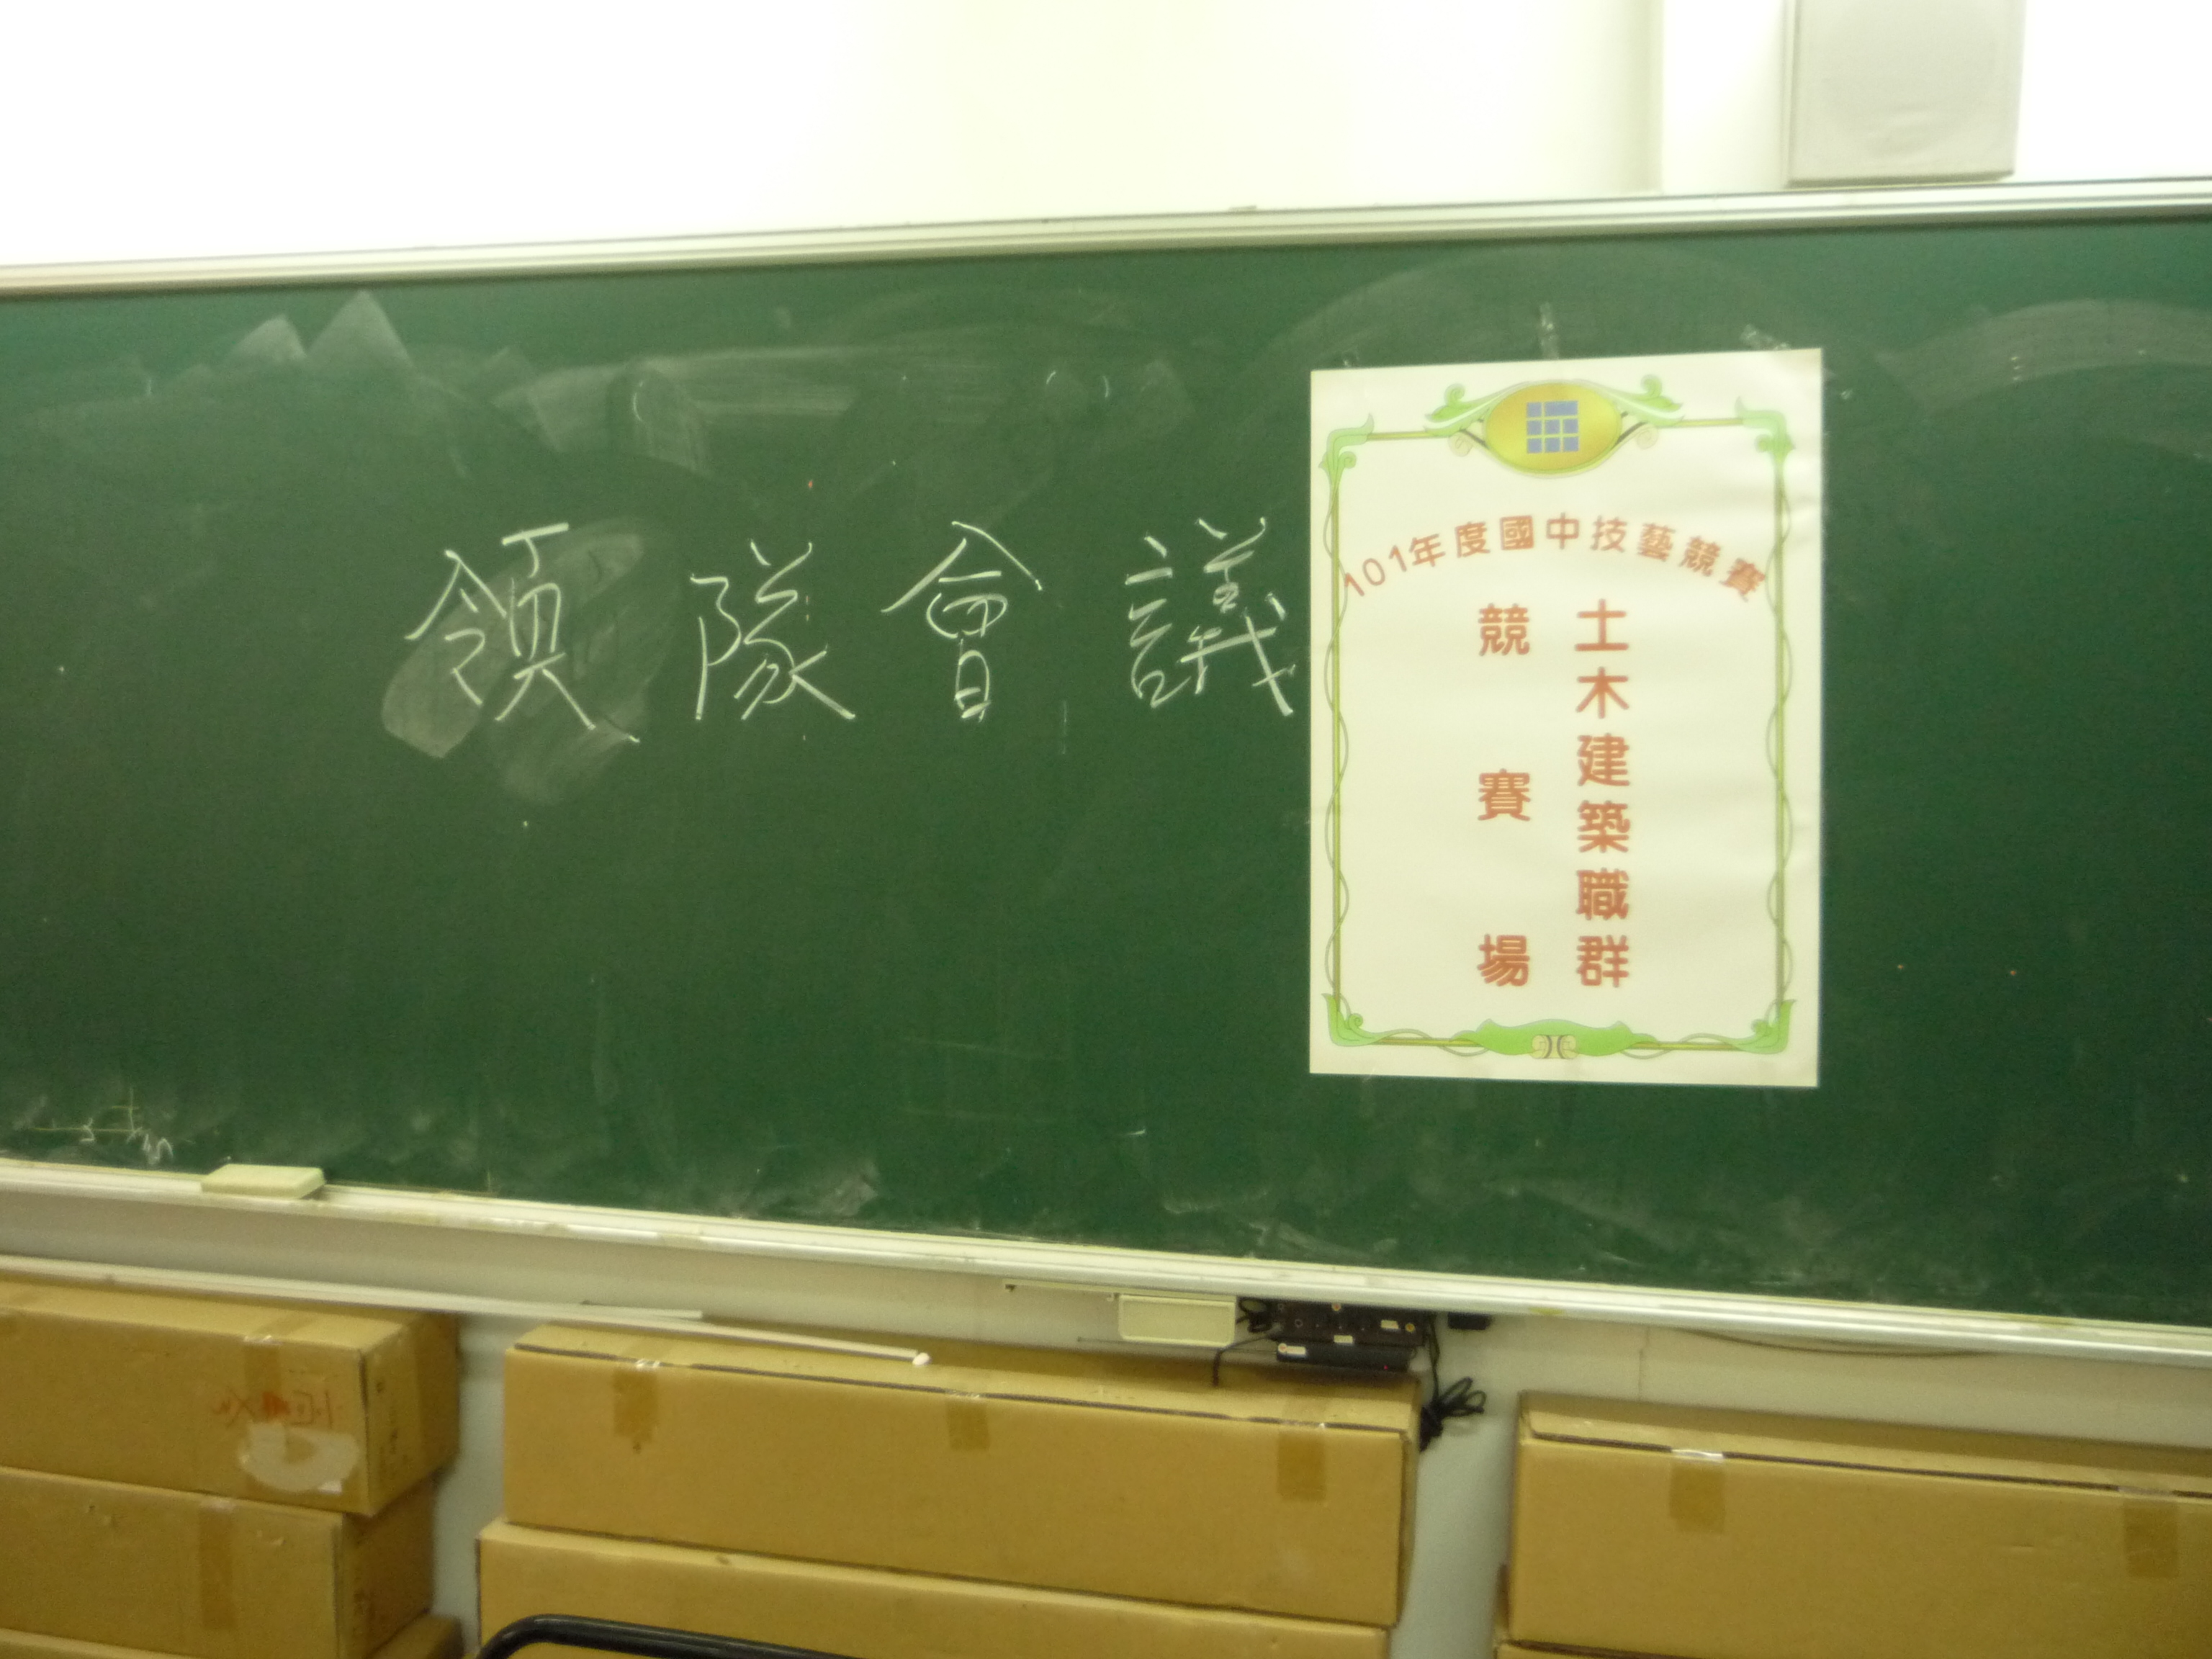 領隊會議
101年度國中技藝競賽
土木建築職群
競賽場